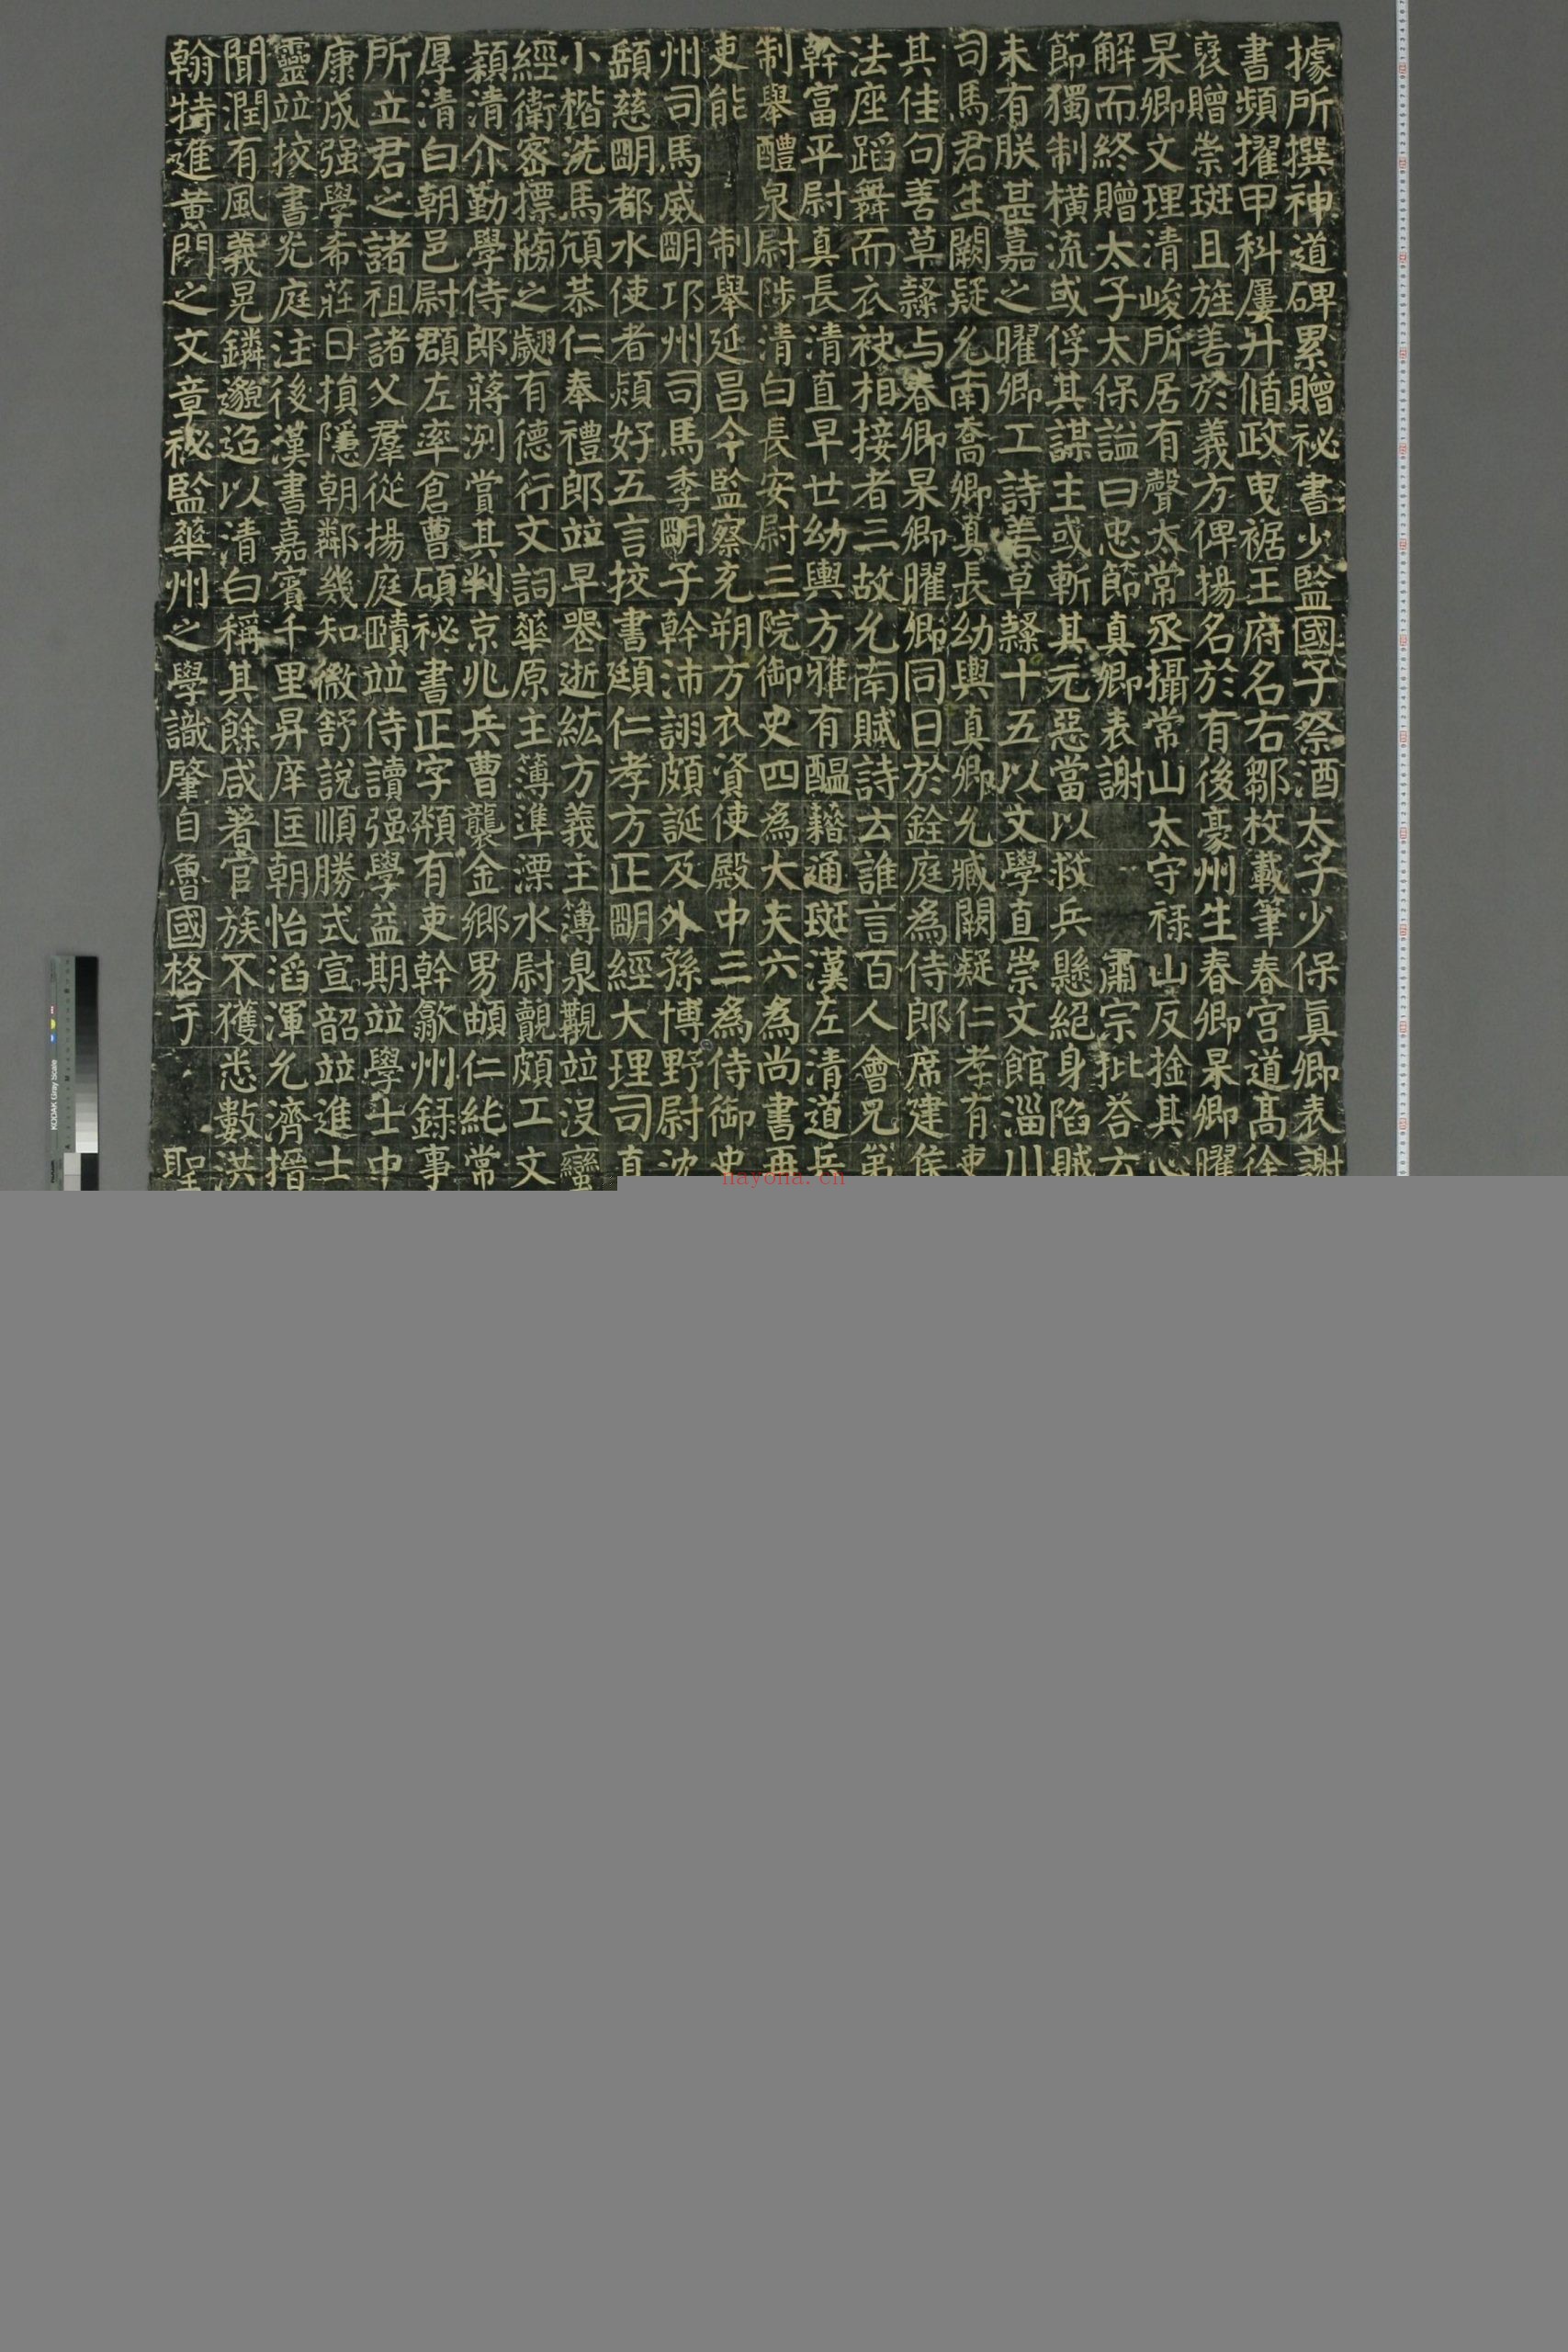 據所撰神道碑累贈祕書少監國子祭酒太子少保真卿表謝
書頻擢甲科屢升傾政曳裾王府名右鄒枚載筆春宮道高徐
褎贈崇班且旌善於義方俾揚名於有後豪州生春卿杲卿曜
杲卿文理清峻所居有聲太常丞攝常山太守祿山反捦其心
解而終贈太子太保謚曰忠節真卿表謝肅宗批荅云
節獨制橫流或俘其謀主或斬其元惡當以救兵懸絕身陷賊
未有朕甚嘉之曜卿工詩善草隸十五以文學直崇文館淄川
司馬君生闕疑允南喬卿真長幼輿真卿允臧闕疑仁孝有吏
其佳句善草隸与春卿杲卿曜卿同日於銓庭為侍郎席建侯
法座蹈舞而衣袂相接者三故允南賦詩云誰言百人會兄弟
幹富平尉真長清直早世幼輿方雅有醞藉通班漢左清道兵
制舉醴泉尉陟清白長安尉三院御史四為大夫六為尚書再
吏能制舉延昌令監察充朔方衣資使殿中三為侍御史
州司馬威明邛州司馬季明子幹沛詡頗誕及外孫博野尉沈
頲慈明都水使者熲好五言校書頲仁孝方正明經大理司直
小楷洗馬頎恭仁奉禮郎並早器逝紘方義主簿泉觀並沒蠻
經衛密摽牓之翽有德行文詞華原主簿準漂水尉覿頗工文
潁清介勤學侍郎蔣洌賞其判京兆兵曹襲金鄉男頔仁純常
厚清白朝邑尉頵左率倉曹碩祕書正字頩有吏幹歙州錄事
所立君之諸祖諸父羣從揚庭賾並侍讀强學益期並學士中
康成强學希莊日損隱朝鄰幾知微舒說順勝式宣韶並進士
靈並挍書光庭注後漢書嘉賓千里昇庠匡朝怡滔渾允濟搢
聞潤有風義晃鏻邈迢以清白稱其餘咸著官族不獲悉數洪
翰特進黃門之文章祕監華州之學識肇自魯國格于聖
nayona.cn